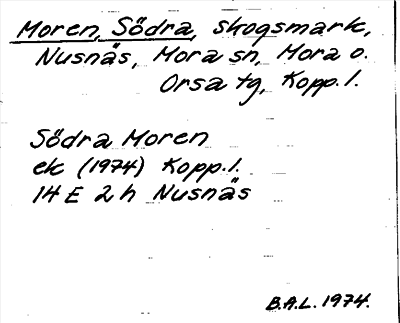 Moren, Södra, skogsmark,
Nusnäs, Mora sn, Mora o.
Orsa tg, Kopp. l.
Södra Moren
ek (1974) Kopp. l.
14 E 2 h Nusnäs
B.A.L. 1974.